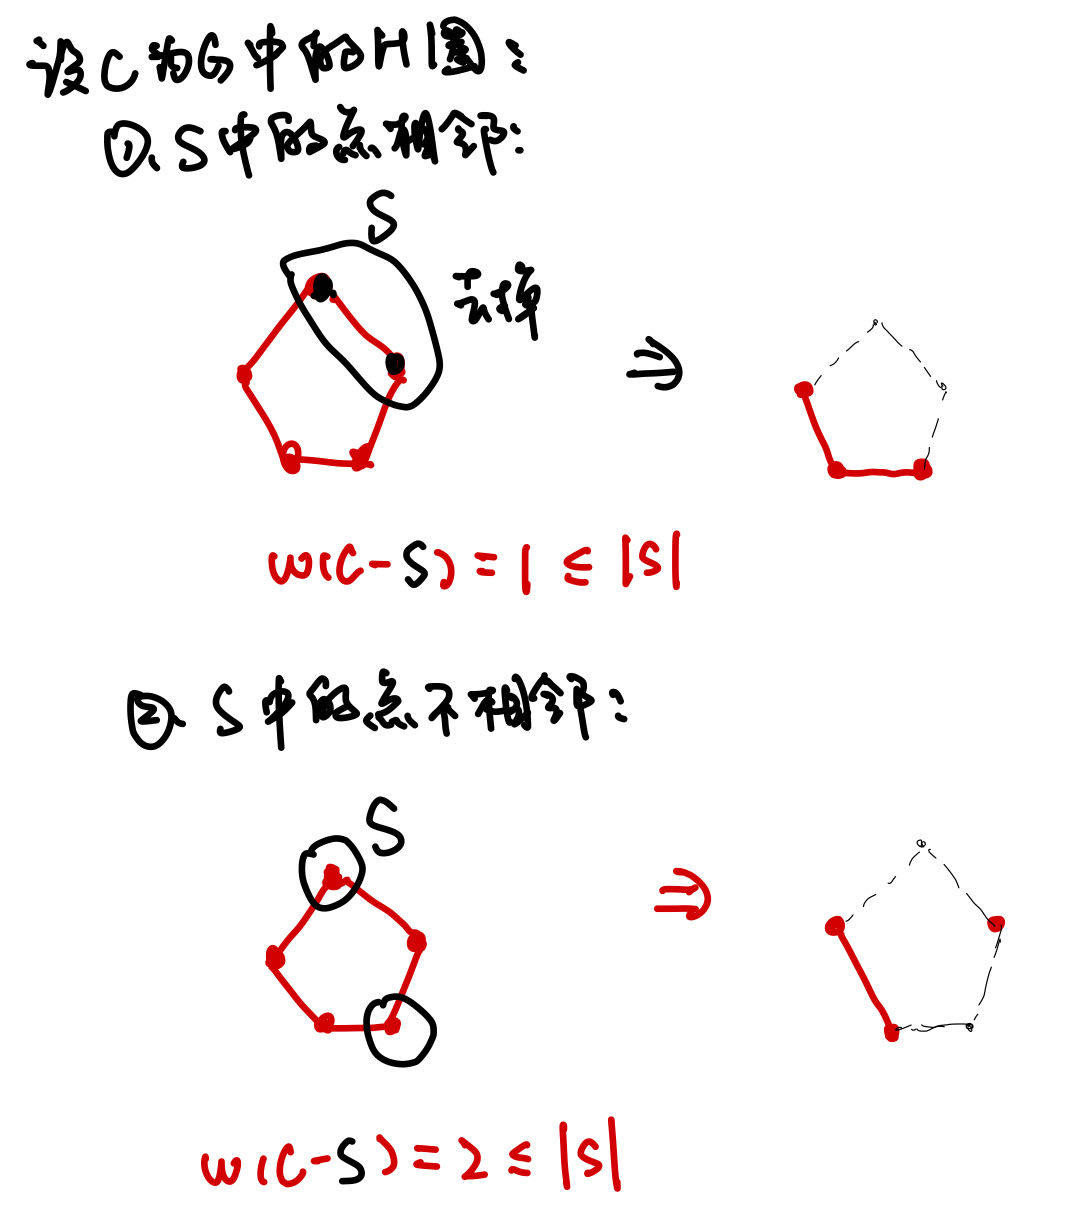 设C为G中的H圈：
①、S中的点相邻：
S
去掉
⇒
w(C-S)=1≤|S|
②、S中的点不相邻：
S
⇒
w(C-S)=2≤|S|